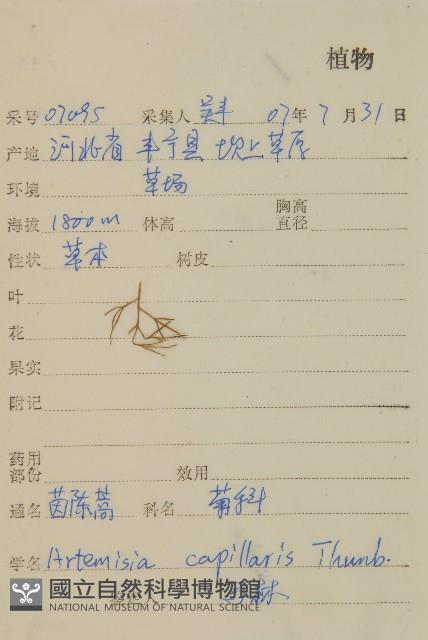 植物
采号 07095 采集人 吴丰 07年 7月 31日
产地 河北省丰宁县坝上草原
环境 草场
海拔 1800m 体高 胸高直径
性状 草本 树皮
叶
花
果实
附记
药用部份 效用
通名 茵陈蒿 科名 菊科
学名 Artemisia capillaris Thunb.
國立自然科學博物館
NATIONAL MUSEUM OF NATURAL SCIENCE